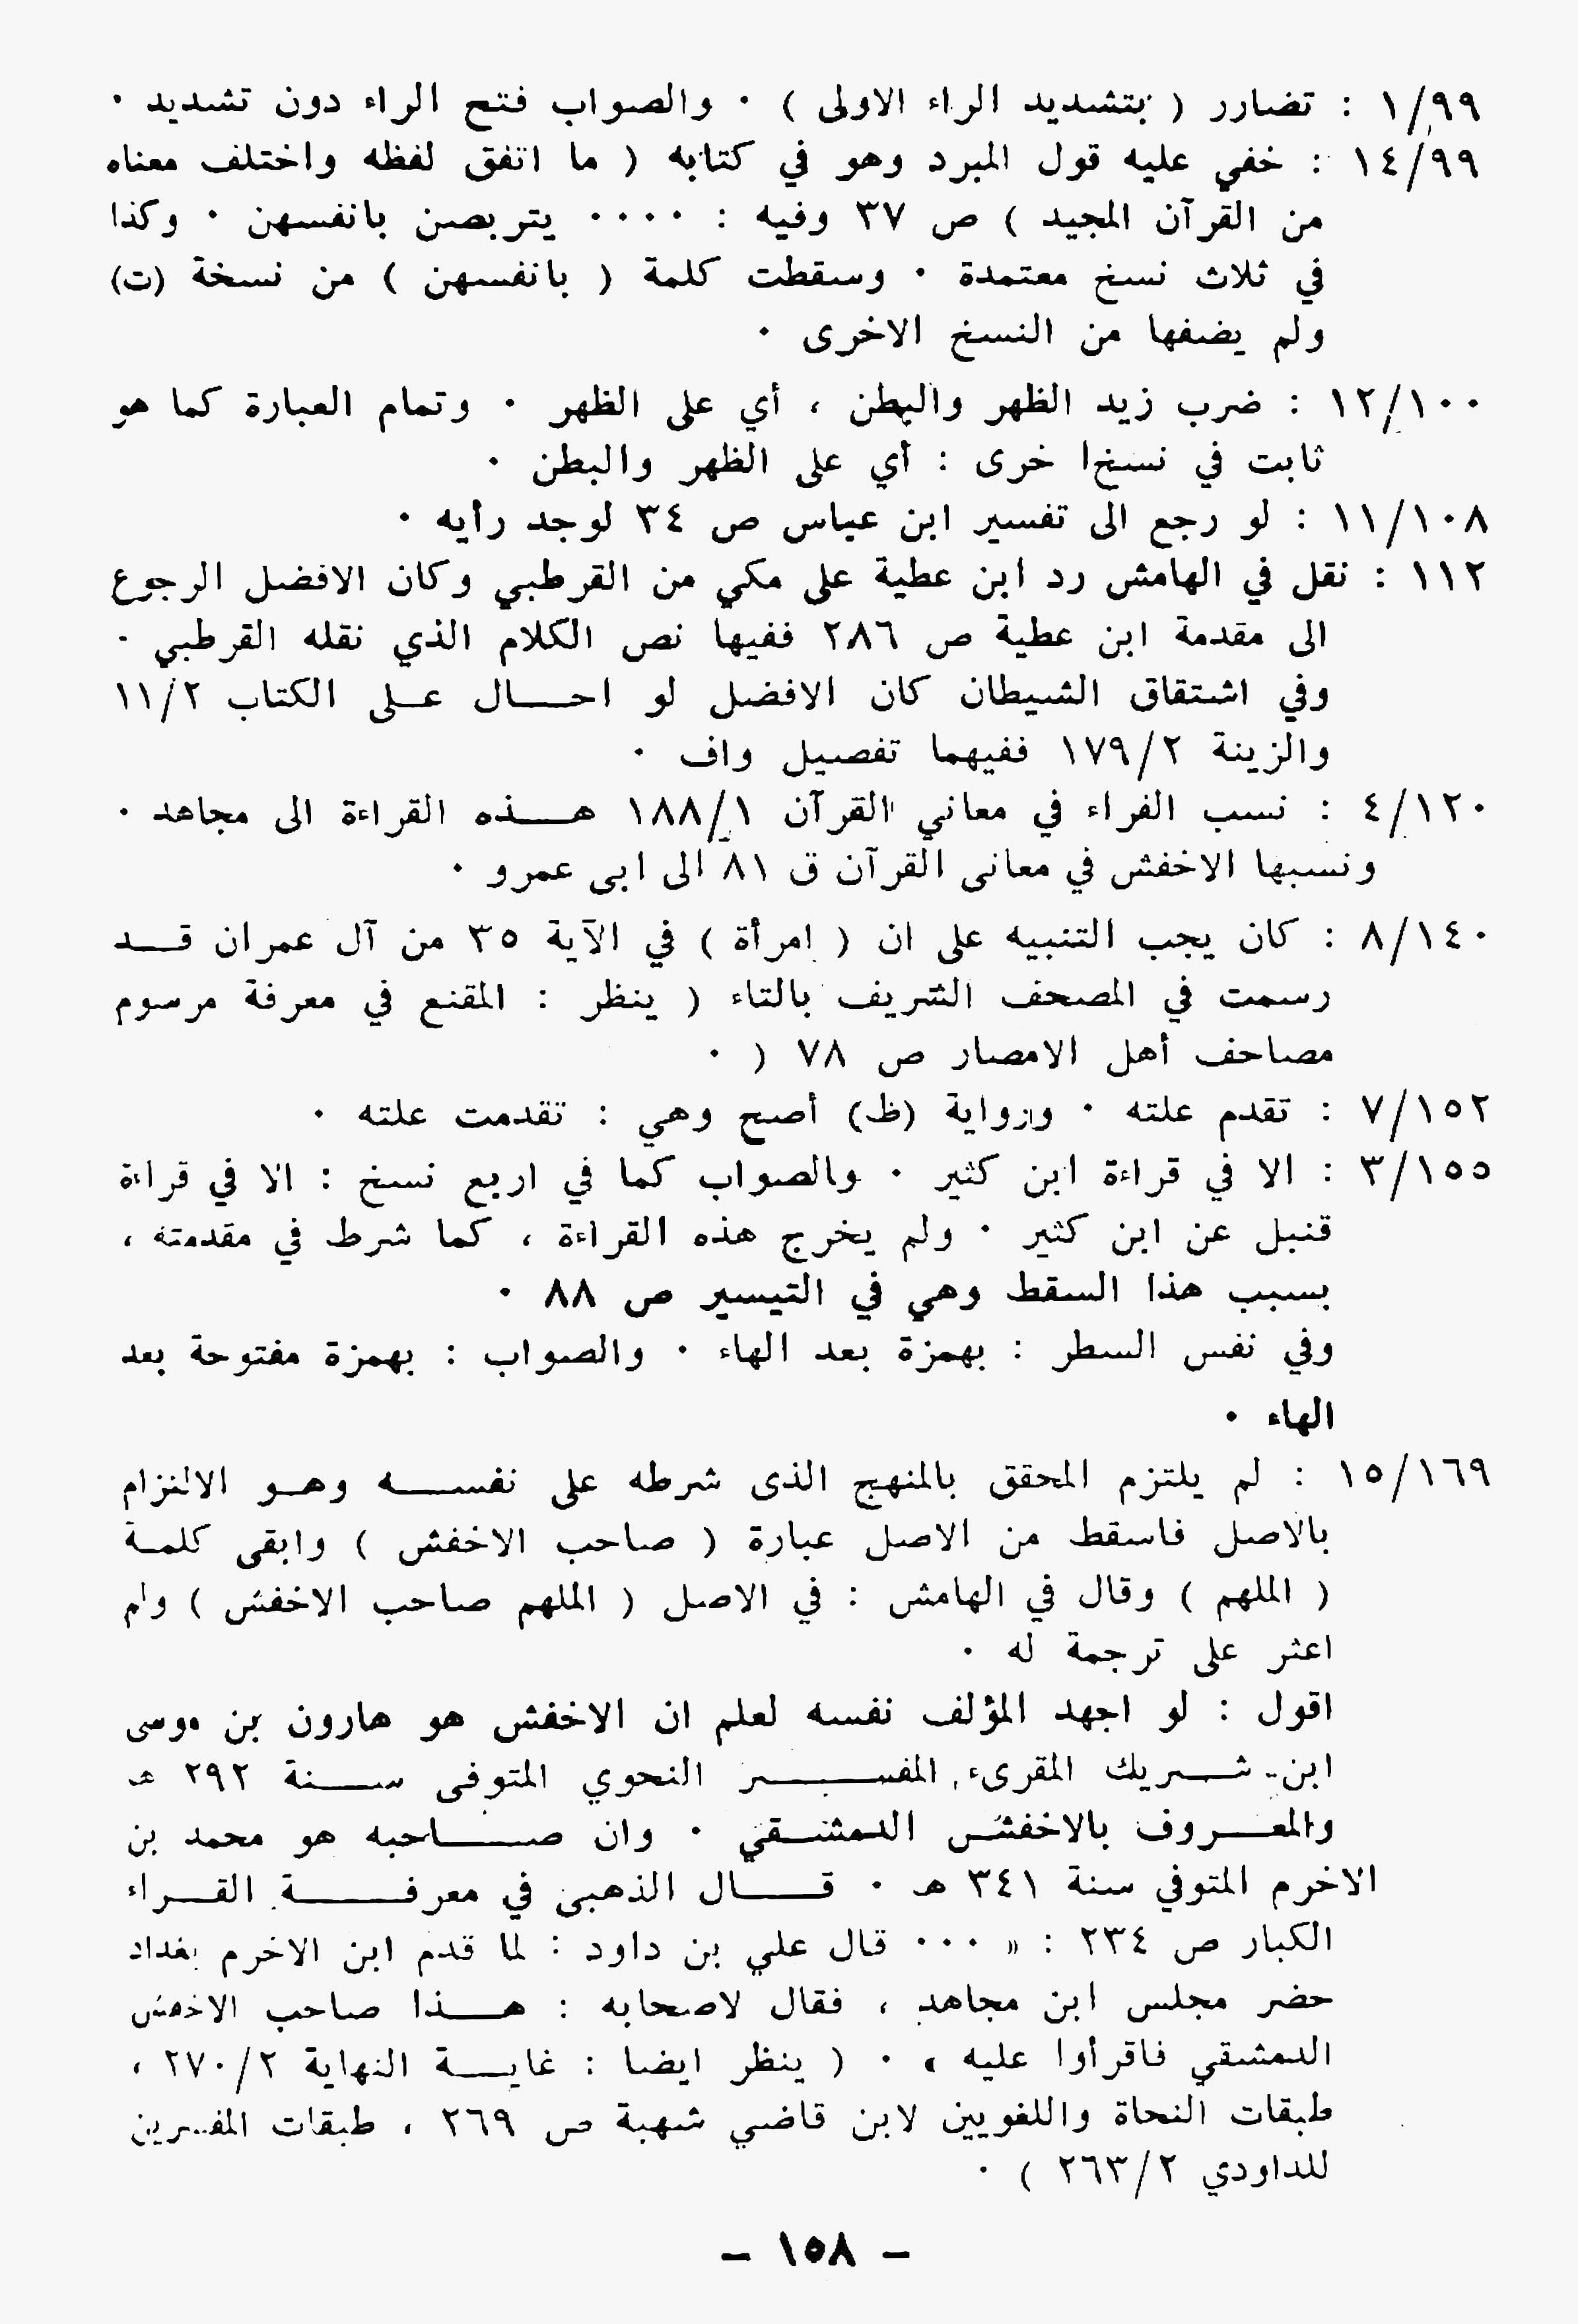 ١/٩٩ : تضارر ( بتشديد الراء الاولى ) ٠ والصواب فتح الراء دون تشديد ٠
١٤/٩٩ : خفي عليه قول المبرد وهو في كتابه ( ما اتفق لفظه واختلف معناه
من القرآن المجيد ) ص ٣٧ وفيه : ٠٠٠٠ يتربصن بانفسهن ٠ وكذا
في ثلاث نسخ معتمدة ٠ وسقطت كلمة ( بانفسهن ) من نسخة (ت)
ولم يضفها من النسخ الاخرى ٠
١٢/١٠٠ : ضرب زيد الظهر والبطن ، أي على الظهر ٠ وتمام العبارة كما هو
ثابت في نسخ‍ا خرى : أي على الظهر والبطن ٠
١١/١٠٨ : لو رجع الى تفسير ابن عباس ص ٣٤ لوجد رأيه ٠
١١٢ : نقل في الهامش رد ابن عطية على مكي من القرطبي وكان الافضل الرجوع
الى مقدمة ابن عطية ص ٢٨٦ ففيها نص الكلام الذي نقله القرطبي ٠
وفي اشتقاق الشيطان كان الافضل لو احـــال عـلى الكتاب ١١/٢
والزينة ١٧٩/٢ ففيهما تفصيل واف ٠
٤/١٢٠ : نسب الفراء في معاني القرآن ١٨٨/١ هـــذه القراءة الى مجاهد ٠
ونسبها الاخفش في معانى القرآن ق ٨١ الى ابى عمرو ٠
٨/١٤٠ : كان يجب التنبيه على ان ( امرأة ) في الآية ٣٥ من آل عمران قــد
رسمت في المصحف الشريف بالتاء ( ينظر : المقنع في معرفة مرسوم
مصاحف أهل الامصار ص ٧٨ ) ٠
٧/١٥٢ : تقدم علته ٠ ورواية (ظ) أصح وهي : تقدمت علته ٠
٣/١٥٥ : الا في قراءة ابن كثير ٠ والصواب كما في اربع نسخ : الا في قراءة
قنبل عن ابن كثير ٠ ولم يخرج هذه القراءة ، كما شرط في مقدمته ،
بسبب هذا السقط وهي في التيسير ص ٨٨ ٠
وفي نفس السطر : بهمزة بعد الهاء ٠ والصواب : بهمزة مفتوحة بعد
الهاء ٠
١٥/١٦٩ : لم يلتزم المحقق بالمنهج الذى شرطه على نفســـه وهــو الالتزام
بالاصل فاسقط من الاصل عبارة ( صاحب الاخفش ) وابقى كلمــة
( الملهم ) وقال في الهامش : في الاصل ( الملهم صاحب الاخفش ) ولم
اعثر على ترجمة له ٠
اقول : لو اجهد المؤلف نفسه لعلم ان الاخفش هو هارون بن موسى
ابن شـــريك المقرىء المفســـــر النحوي المتوفى ســـنة ٢٩٢ هـ
والمعــروف بالاخفش الدمشــقي ٠ وان صـــــاحبه هو محمد بن
الاخرم المتوفي سنة ٣٤١ هـ ٠ قــــال الذهبى في معرفــــة القــراء
الكبار ص ٢٣٤ : « ٠٠٠ قال علي بن داود : لما قدم ابن الاخرم بغداد
حضر مجلس ابن مجاهد ، فقال لاصحابه : هـــذا صاحب الاخفش
الدمشقي فاقرأوا عليه » ٠ ( ينظر ايضا : غايــة النهاية ٢٧٠/٢ ،
طبقات النحاة واللغويين لابن قاضي شهبة ص ٢٦٩ ، طبقات المفسرين
للداودي ٢٦٣/٢ ) ٠
– ١٥٨ –